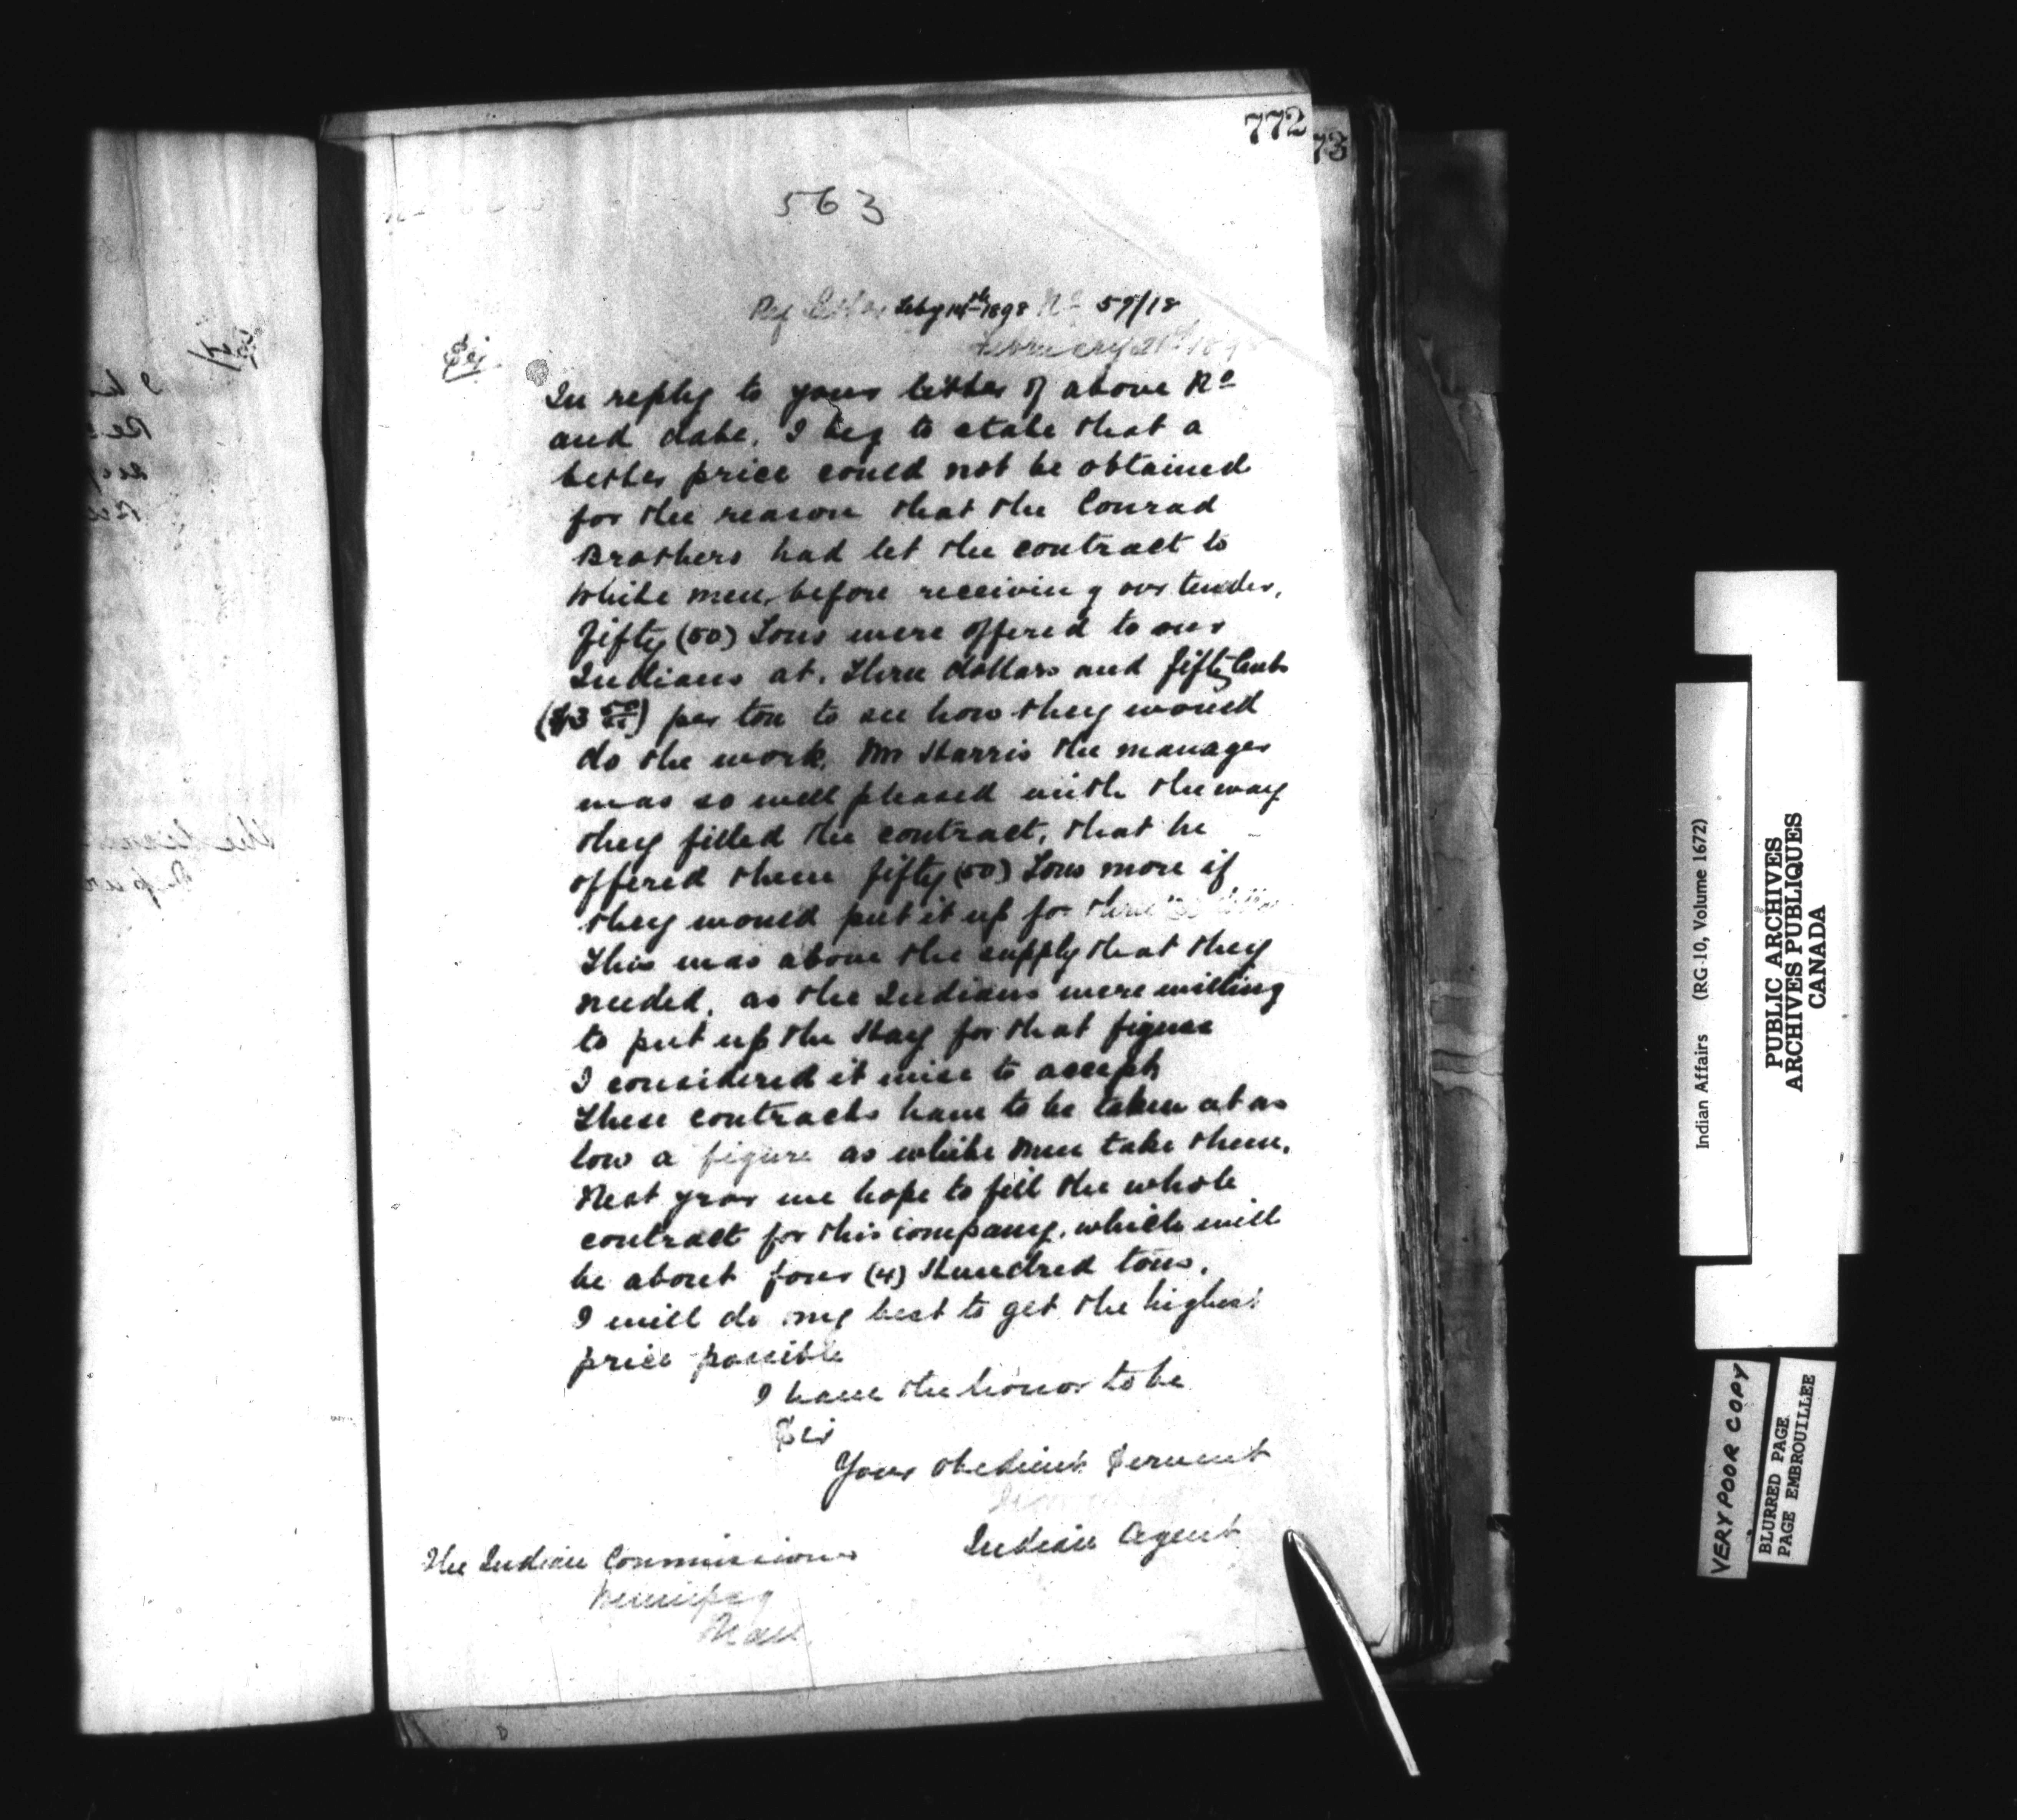 772
73
563
Ref Letter Feby 14th 1898 No 59/18
February 21st 1898
Sir
In reply to your letter of above No
and date, I beg to state that a
better price could not be obtained
for the reason that the Conrad
Brothers had let the contract to
White men, before receiving our tender,
Fifty (50) Tons were offered to our
Indians at, Three dollars and fifty Cents
($3 50/cts) per ton to see how they would
do the work. Mr Harris the manager
was so well pleased with the way
they filled the contract, that he
offered them fifty (50) Tons more if
they would put it up for three
This was above the supply that they
needed, as the Indians were willing
to put up the Hay for that figure
I considered it wise to accept
These contracts have to be taken at as
low a figure as white men take them.
Next year we hope to fill the whole
contract for this company, which will
be about four (4) Hundred tons.
I will do my best to get the highest
price possible
I have the honor to be
Sir
Your obedient Servant
Indian Agent
The Indian Commissioner
Winnipeg
Man
Indian Affairs (RG 10, Volume 1672)
PUBLIC ARCHIVES
ARCHIVES PUBLIQUES
CANADA
VERY POOR COPY
BLURRED PAGE
PAGE EMBROUILLEE